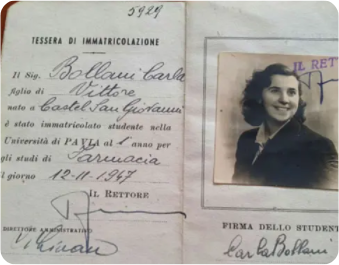 5929
TESSERA DI IMMATRICOLAZIONE
Il Sig. Bollani Carla
figlio di Vittore
nato a Castel San Giovanni
è stato immatricolato studente nella
Università di PAVIA al 1° anno per
gli studi di Farmacia
il giorno 12-11-1947
IL RETTORE
DIRETTORE AMMINISTRATIVO
IL RETTO
FIRMA DELLO STUDENT
Carla Bollani